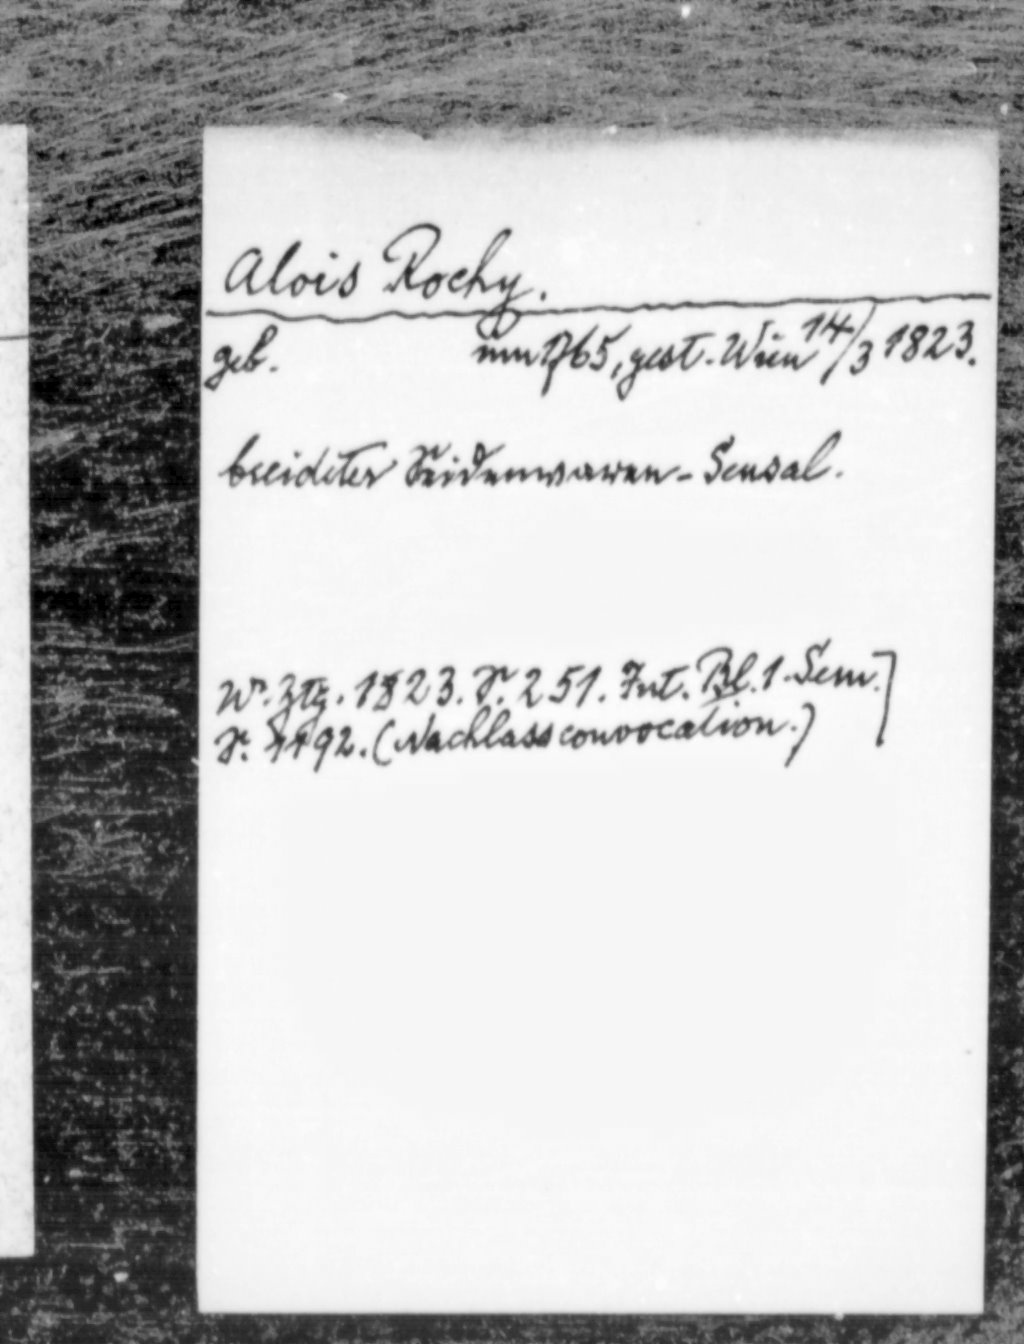 Alois Rochy.
geb. um 1765, gest. Wien 14/3 1823.
beeideter Seidenwaren-Sensal.
W. Ztg. 1823. S. 251. Int. Bl. 1. Sem.]
S. 1192. (Nachlassconvocation.)